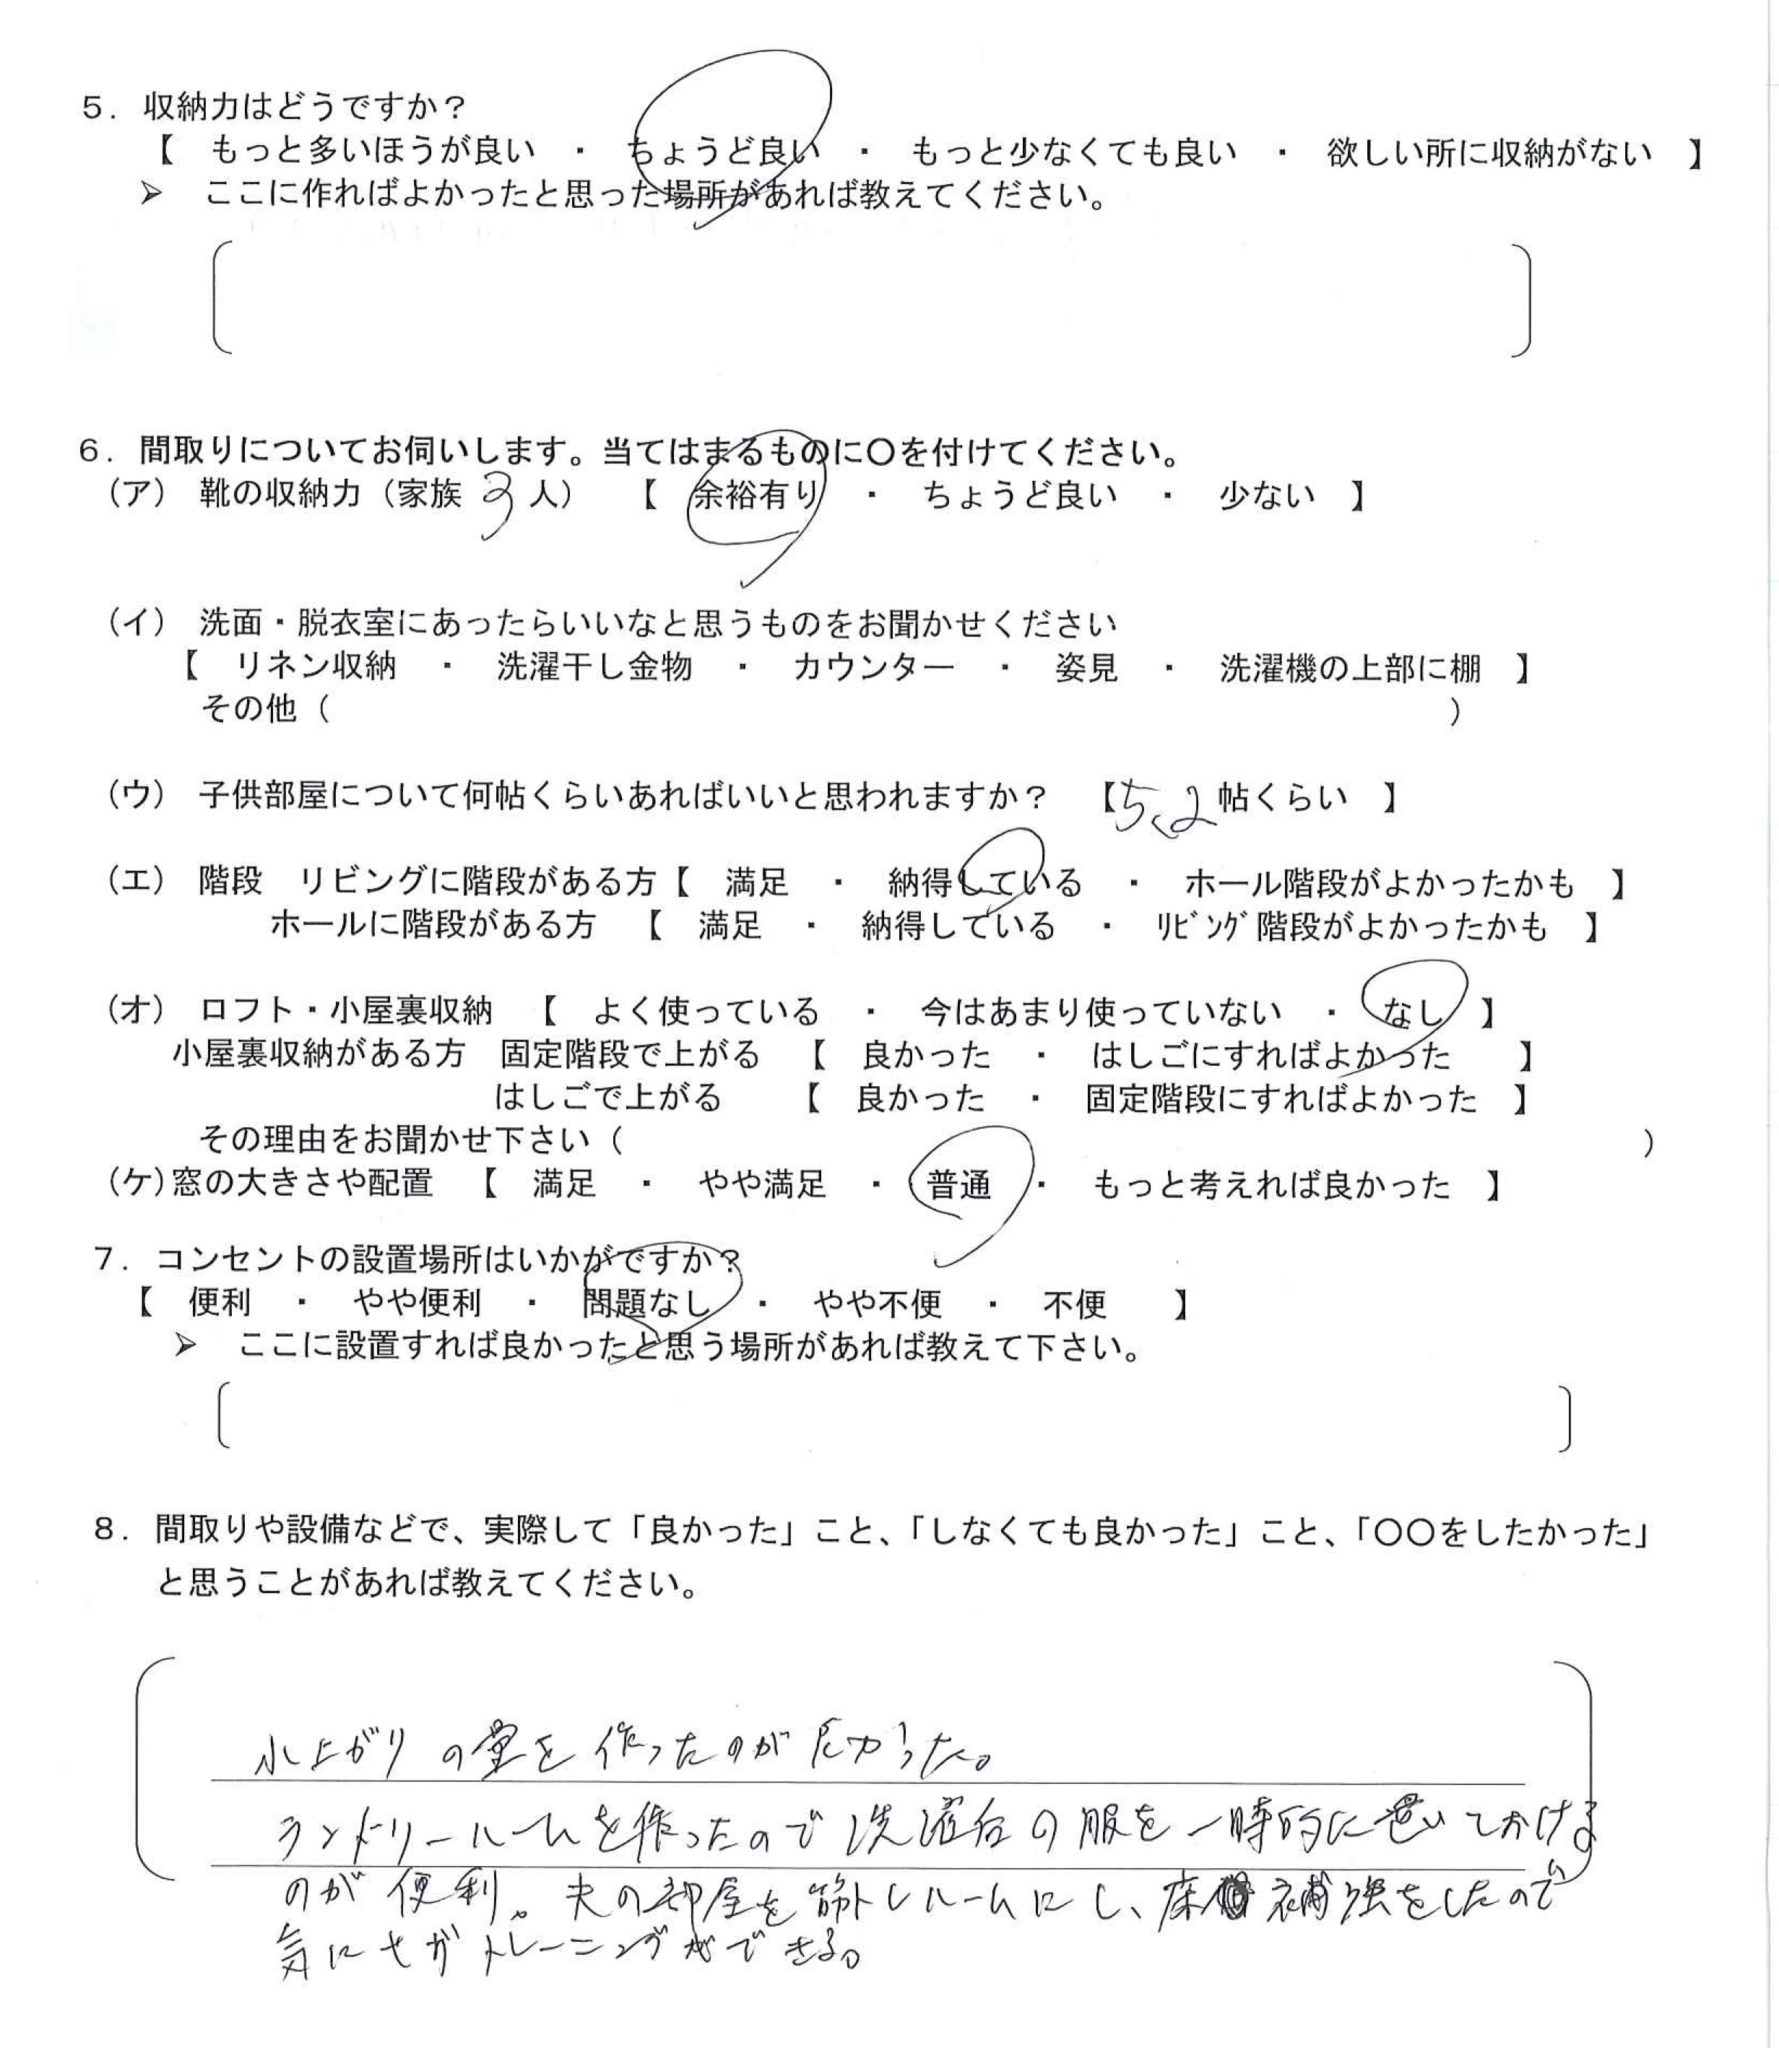 ５．収納力はどうですか？
【　もっと多いほうが良い　・　ちょうど良い　・　もっと少なくても良い　・　欲しい所に収納がない　】
➢　ここに作ればよかったと思った場所があれば教えてください。
６．間取りについてお伺いします。当てはまるものに〇を付けてください。
（ア）　靴の収納力（家族　3　人）　【　余裕有り　・　ちょうど良い　・　少ない　】
（イ）　洗面・脱衣室にあったらいいなと思うものをお聞かせください
【　リネン収納　・　洗濯干し金物　・　カウンター　・　姿見　・　洗濯機の上部に棚　】
その他（　　　　　）
（ウ）　子供部屋について何帖くらいあればいいと思われますか？　【5.2 帖くらい　】
（エ）　階段　リビングに階段がある方【　満足　・　納得している　・　ホール階段がよかったかも　】
ホールに階段がある方　【　満足　・　納得している　・　ﾘﾋﾞﾝｸﾞ階段がよかったかも　】
（オ）　ロフト・小屋裏収納　【　よく使っている　・　今はあまり使っていない　・　なし　】
小屋裏収納がある方　固定階段で上がる　【　良かった　・　はしごにすればよかった　】
はしごで上がる　【　良かった　・　固定階段にすればよかった　】
その理由をお聞かせ下さい（　　　　　）
（ケ）窓の大きさや配置　【　満足　・　やや満足　・　普通　・　もっと考えれば良かった　】
７．コンセントの設置場所はいかがですか？
【　便利　・　やや便利　・　問題なし　・　やや不便　・　不便　】
➢　ここに設置すれば良かったと思う場所があれば教えて下さい。
８．間取りや設備などで、実際して「良かった」こと、「しなくても良かった」こと、「〇〇をしたかった」
と思うことがあれば教えてください。
小上がりの畳を作ったのが良かった。
ランドリールームを作ったので洗濯後の服を一時的に置いてかける
のが便利。夫の部屋を筋トレルームにし、床補強をしたので
気にせずトレーニングができる。